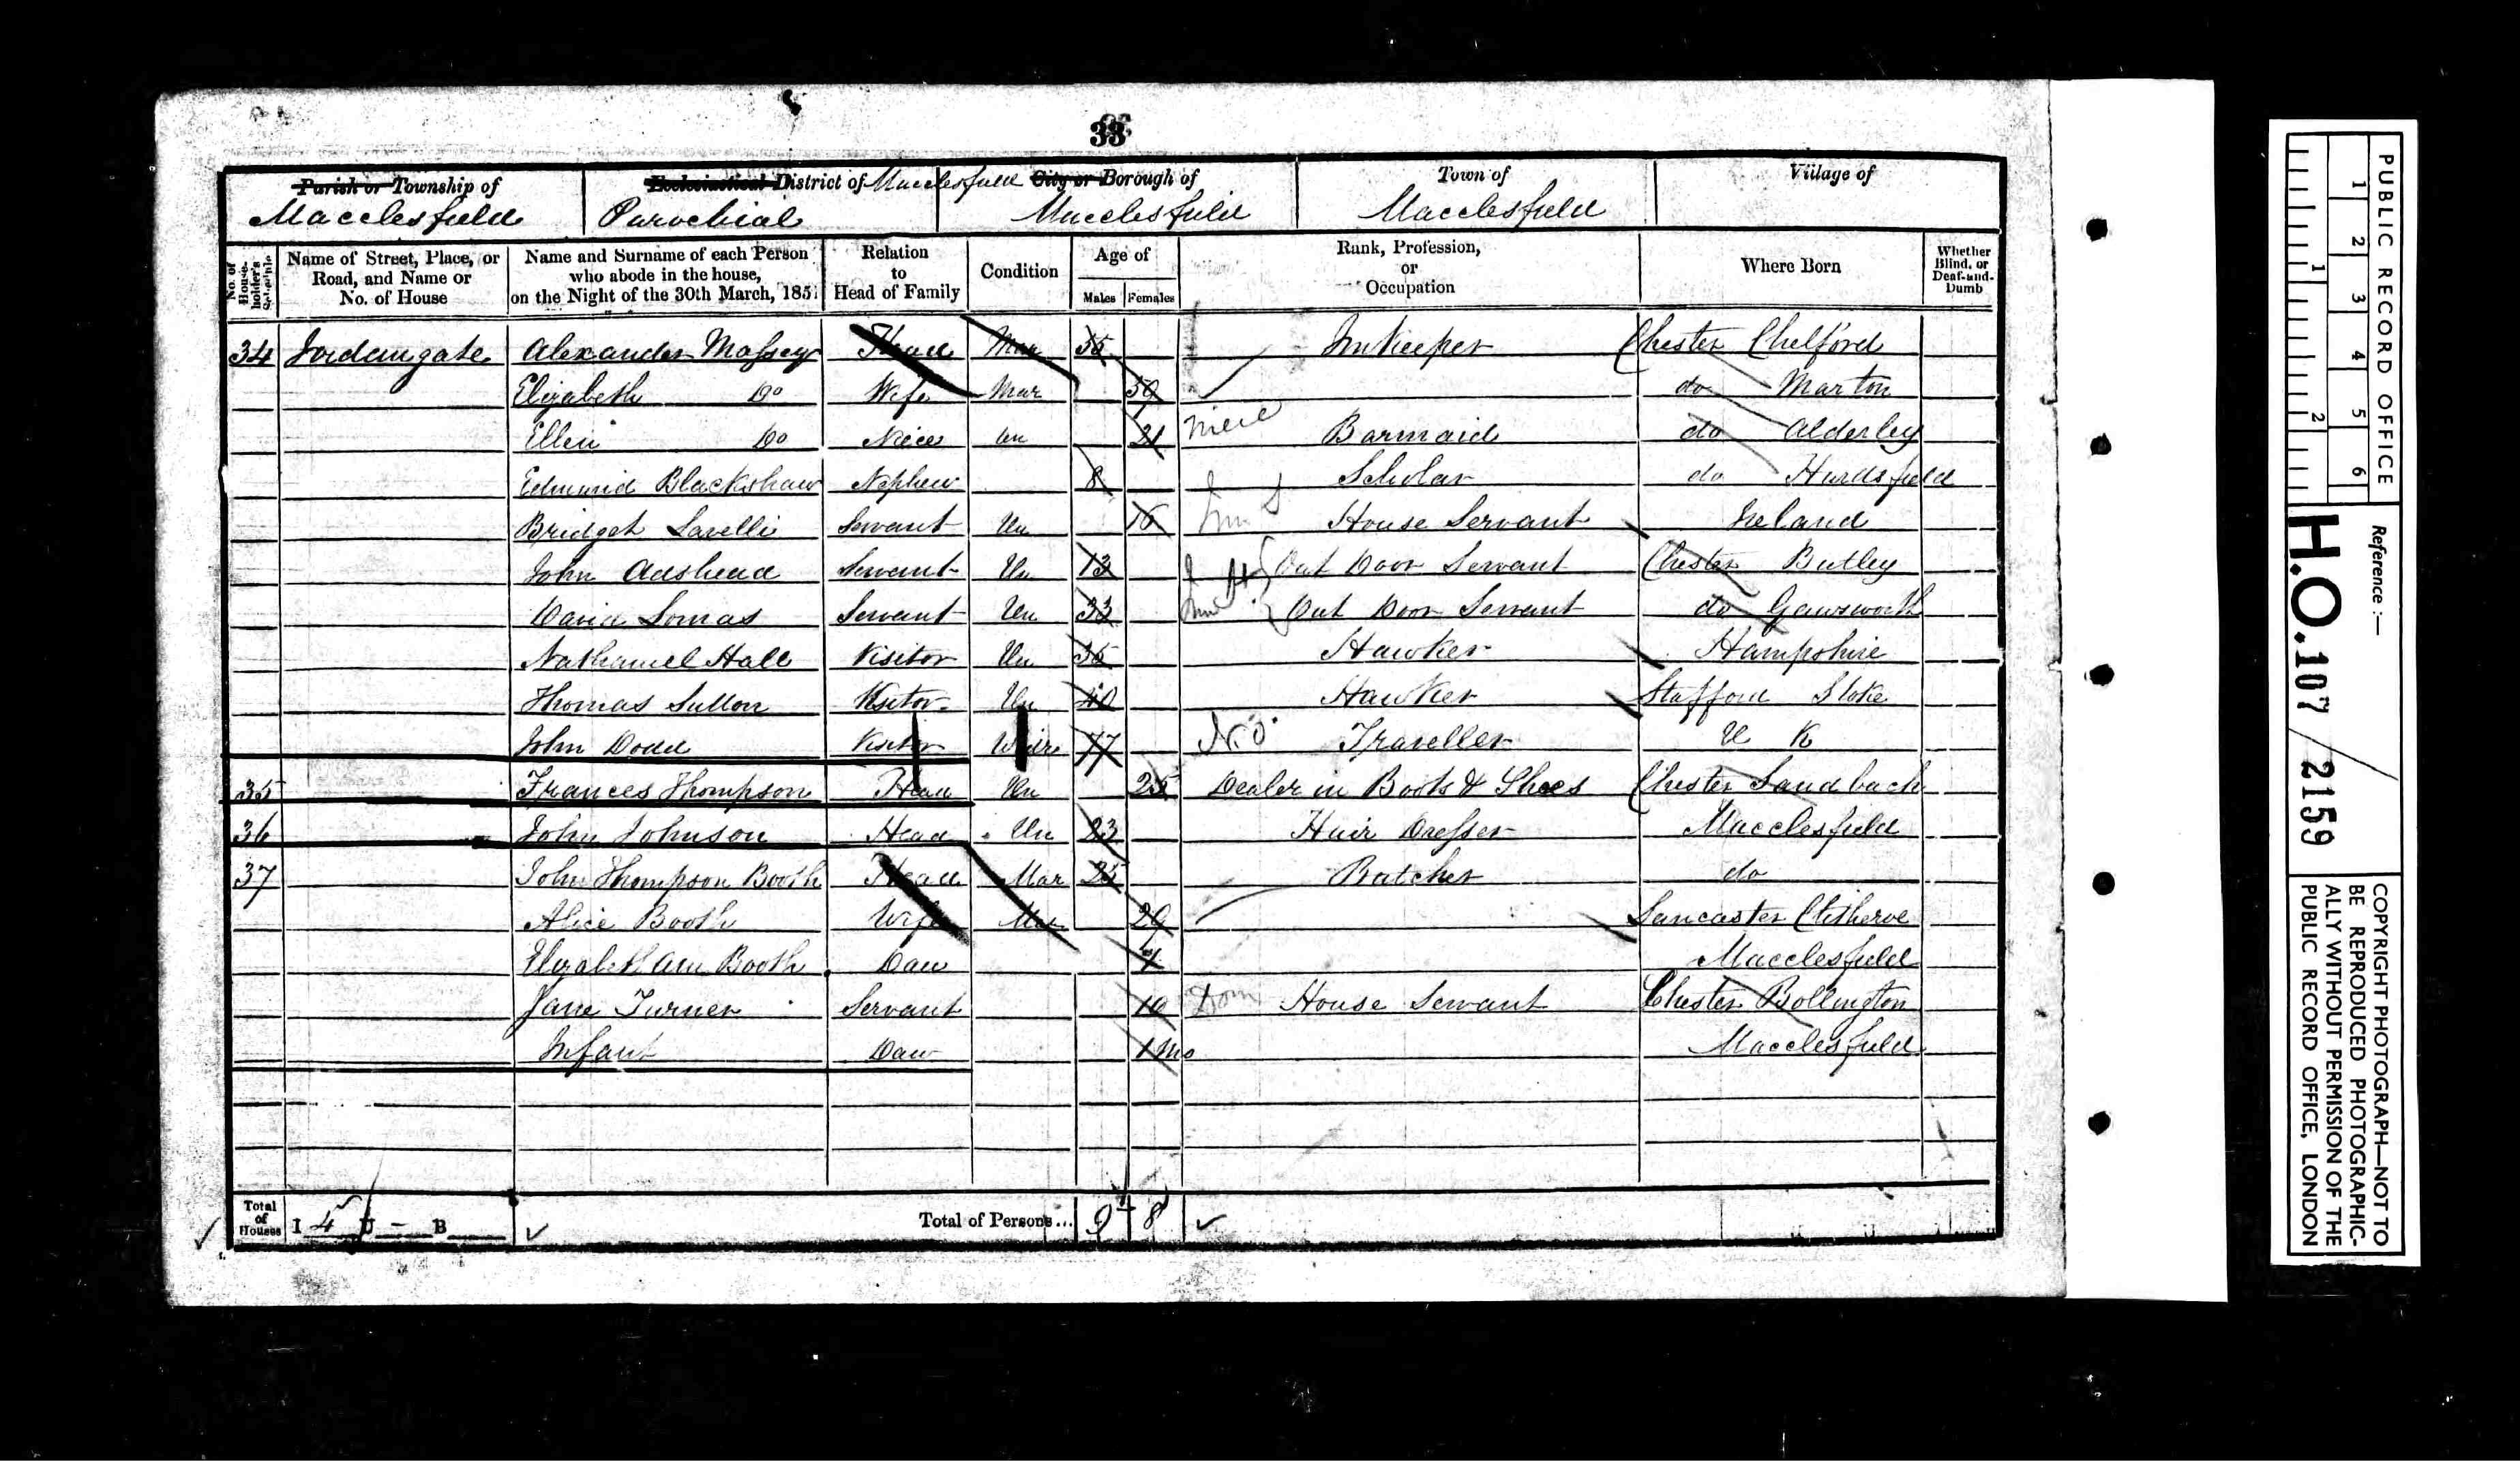 33
Parish or Township of
Macclesfield
Ecclesiastical District of Macclesfield
Parochial
City or Borough of
Macclesfield
Town of
Macclesfield
Village of
No. of House-holder's Schedule
Name of Street, Place, or Road, and Name or No. of House
Name and Surname of each Person who abode in the house, on the Night of the 30th March, 1851
Relation to Head of Family
Condition
Age of
Males Females
Rank, Profession, or Occupation
Where Born
Whether Blind, or Deaf-and-Dumb
34 Jordangate Alexander Massey Head Mar 55 Innkeeper Chester Chelford
Elizabeth Do Wife Mar 59 do Marton
Ellen Do Niece Un 21 niece Barmaid do Alderley
Edmund Blackshaw Nephew 8 Scholar do Hurdsfield
Bridget Lavelli Servant Un 16 Inn S House Servant Ireland
John Adshead Servant Un 13 Out Door Servant Chester Butley
David Lomas Servant Un 33 Inn Out Door Servant do Gawsworth
Nathaniel Hall Visitor Un 35 Hawker Hampshire
Thomas Sutton Visitor Un 40 Hawker Stafford Stoke
John Dodd Visitor Widr 77 N.O. Traveller U K
35 Frances Thompson Head Un 25 Dealer in Boots & Shoes Chester Sandbach
36 John Johnson Head Un 23 Hair Dresser Macclesfield
37 John Thompson Booth Head Mar 25 Butcher do
Alice Booth Wife Mar 29 Lancaster Clitheroe
Elizabeth Ann Booth Daur Macclesfield
Jane Turner Servant 10 Dom House Servant Chester Bollington
Infant Daur 1 Mo Macclesfield
Total of Houses I 4 U - B
Total of Persons... 9 8
PUBLIC RECORD OFFICE
1 2 3 4 5 6
1 2
Reference :—
H.O. 107 / 2159
COPYRIGHT PHOTOGRAPH—NOT TO BE REPRODUCED PHOTOGRAPHIC-ALLY WITHOUT PERMISSION OF THE PUBLIC RECORD OFFICE, LONDON